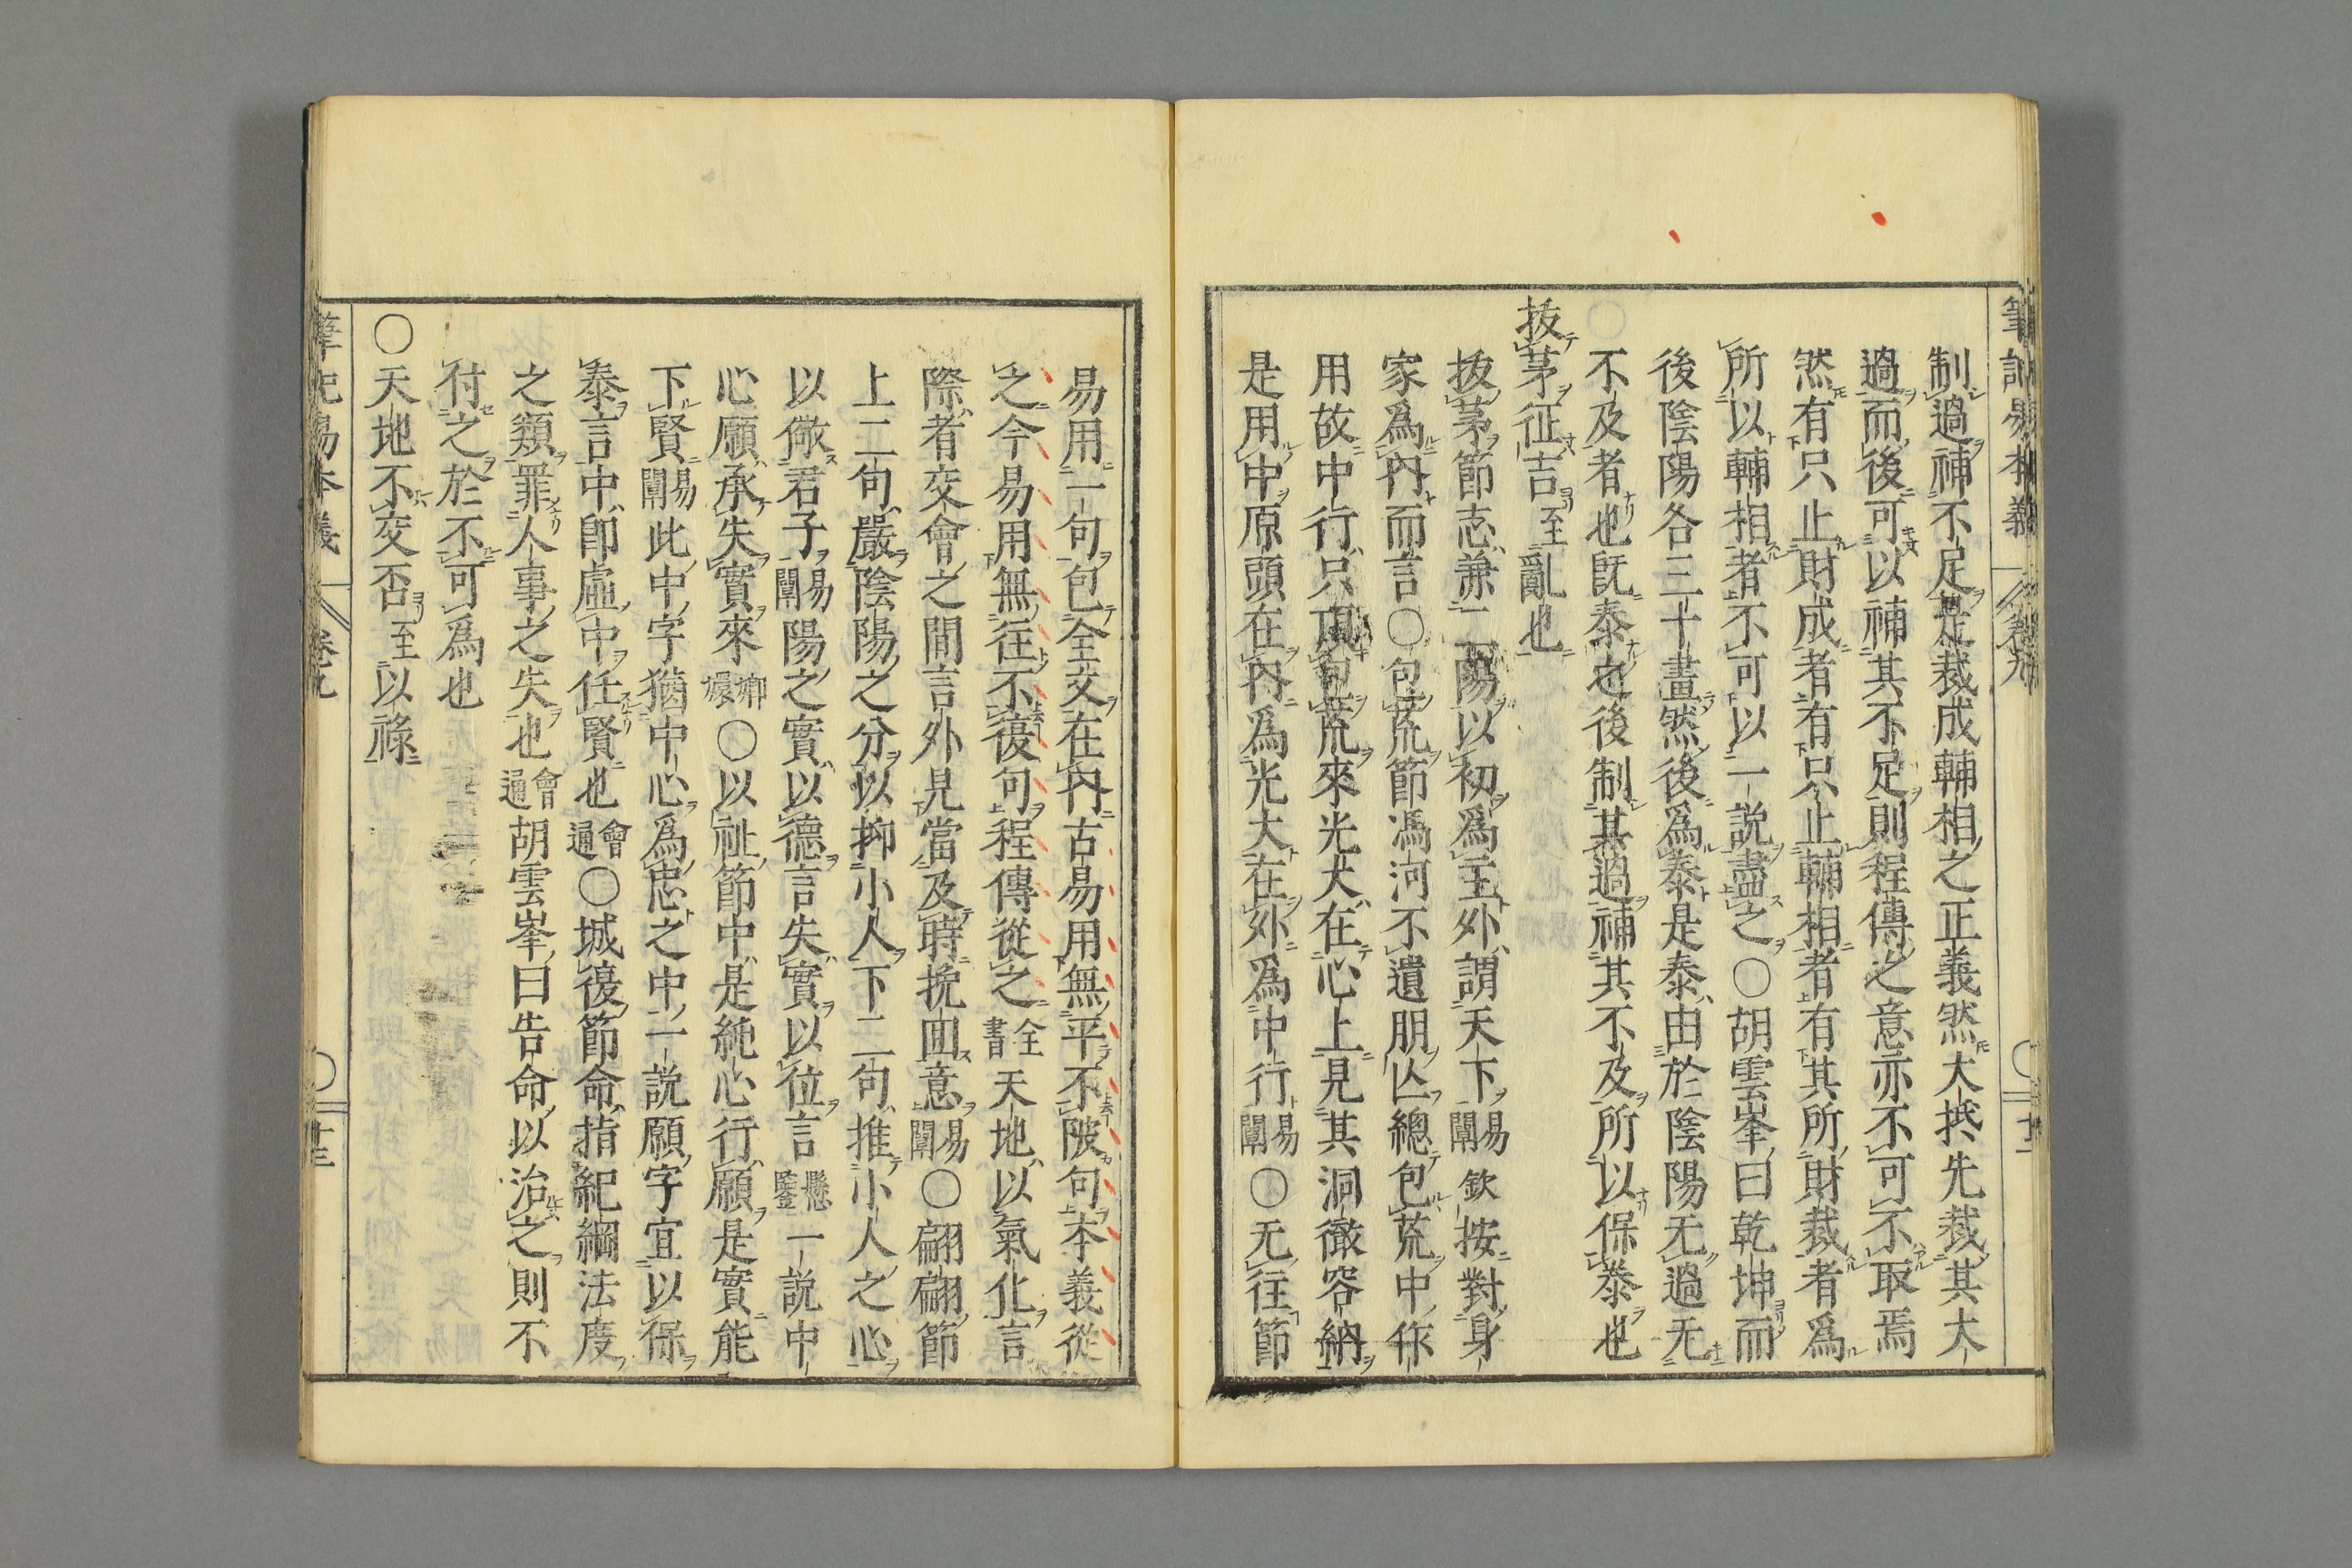 筆記易本義　卷九　十二
制過補不足是裁成輔相之正義然大抵先裁其大
過而後可以補其不足則程傳之意亦不可不取焉
然有只止財成者有只止輔相者有其所財裁者爲
所以輔相者不可以一說盡之〇胡雲峯曰乾坤而
後陰陽各三十畫然後爲泰是泰由於陰陽无過无
不及者也旣泰之後制其過補其不及所以保泰也
拔茅征吉至亂也
拔茅節志兼二陽以初爲主外謂天下易闡欽按對身
家爲內而言〇包荒節馮河不遺朋亾總包荒中作
用故中行只頂包荒來光大在心上見其洞徹容納
是用中原頭在內爲光大在外爲中行易闡〇无往節
易用一句包全爻在內古易用無平不陂句本義從
之今易用無往不復句程傳從之全書天地以氣化言
際者交會之間言外見當及時挽囬意易闡〇翩翩節
上二句嚴陰陽之分以抑小人下二句推小人之心
以儆君子易闡陽之實以德言失實以位言懸鑒一說中
心願承失實來〇以祉節中是純心行願是實能
下賢易闡此中字猶中心爲忠之中一說願字宜以保
泰言中卽虛中任賢也會通〇城復節命指紀綱法度
之類罪人事之失也會通胡雲峯曰告命以治之則不
付之於不可爲也
〇天地不交否至以祿
筆記易本義　卷九　十三